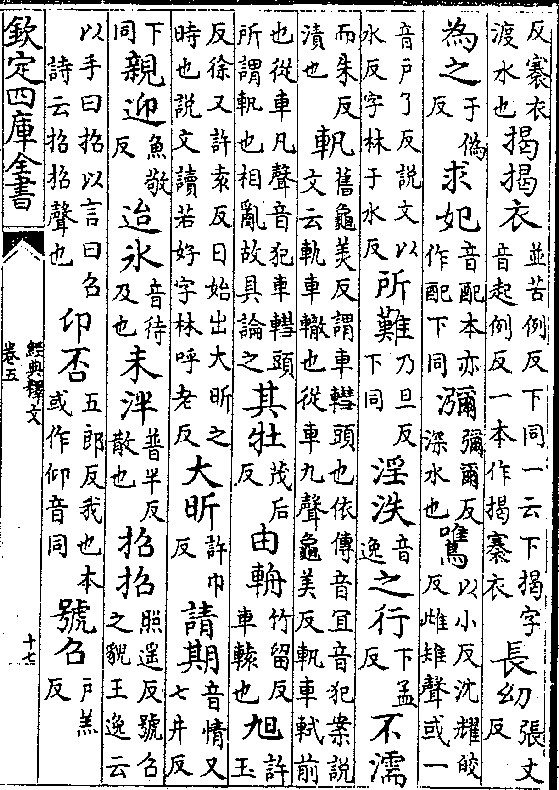 反褰衣渡水也揭揭衣並苦例反下同一云下揭字音起例反一本作揭褰衣長幼張丈反
為之于偽反求妃音配本亦作配下同瀰彌爾反深水也鷕以小反沈耀皎反雌雉聲或一
音戸了反説文以水反字林于水反所難乃旦反下同淫泆音逸之行下孟反不濡
而朱反漬也軓舊龜美反謂車轊頭也依傳音宜音犯案説文云軌車轍也從車九聲龜美反軓車軾前
也從車凡聲音犯車轊頭所謂軹也相亂故具論之其牡茂后反由輈竹留反車轅也旭許玉
反徐又許袁反日始出大昕之時也説文讀若好字林呼老反大昕許巾反請期音情又七井反
下同親迎魚敬反迨冰音待及也未泮普半反散也招招照遥反號召之貌王逸云
以手曰招以言曰召詩云招招聲也卬否五郎反我也本或作仰音同號召戸羔反
欽定四庫全書
經典釋文
卷五
十七